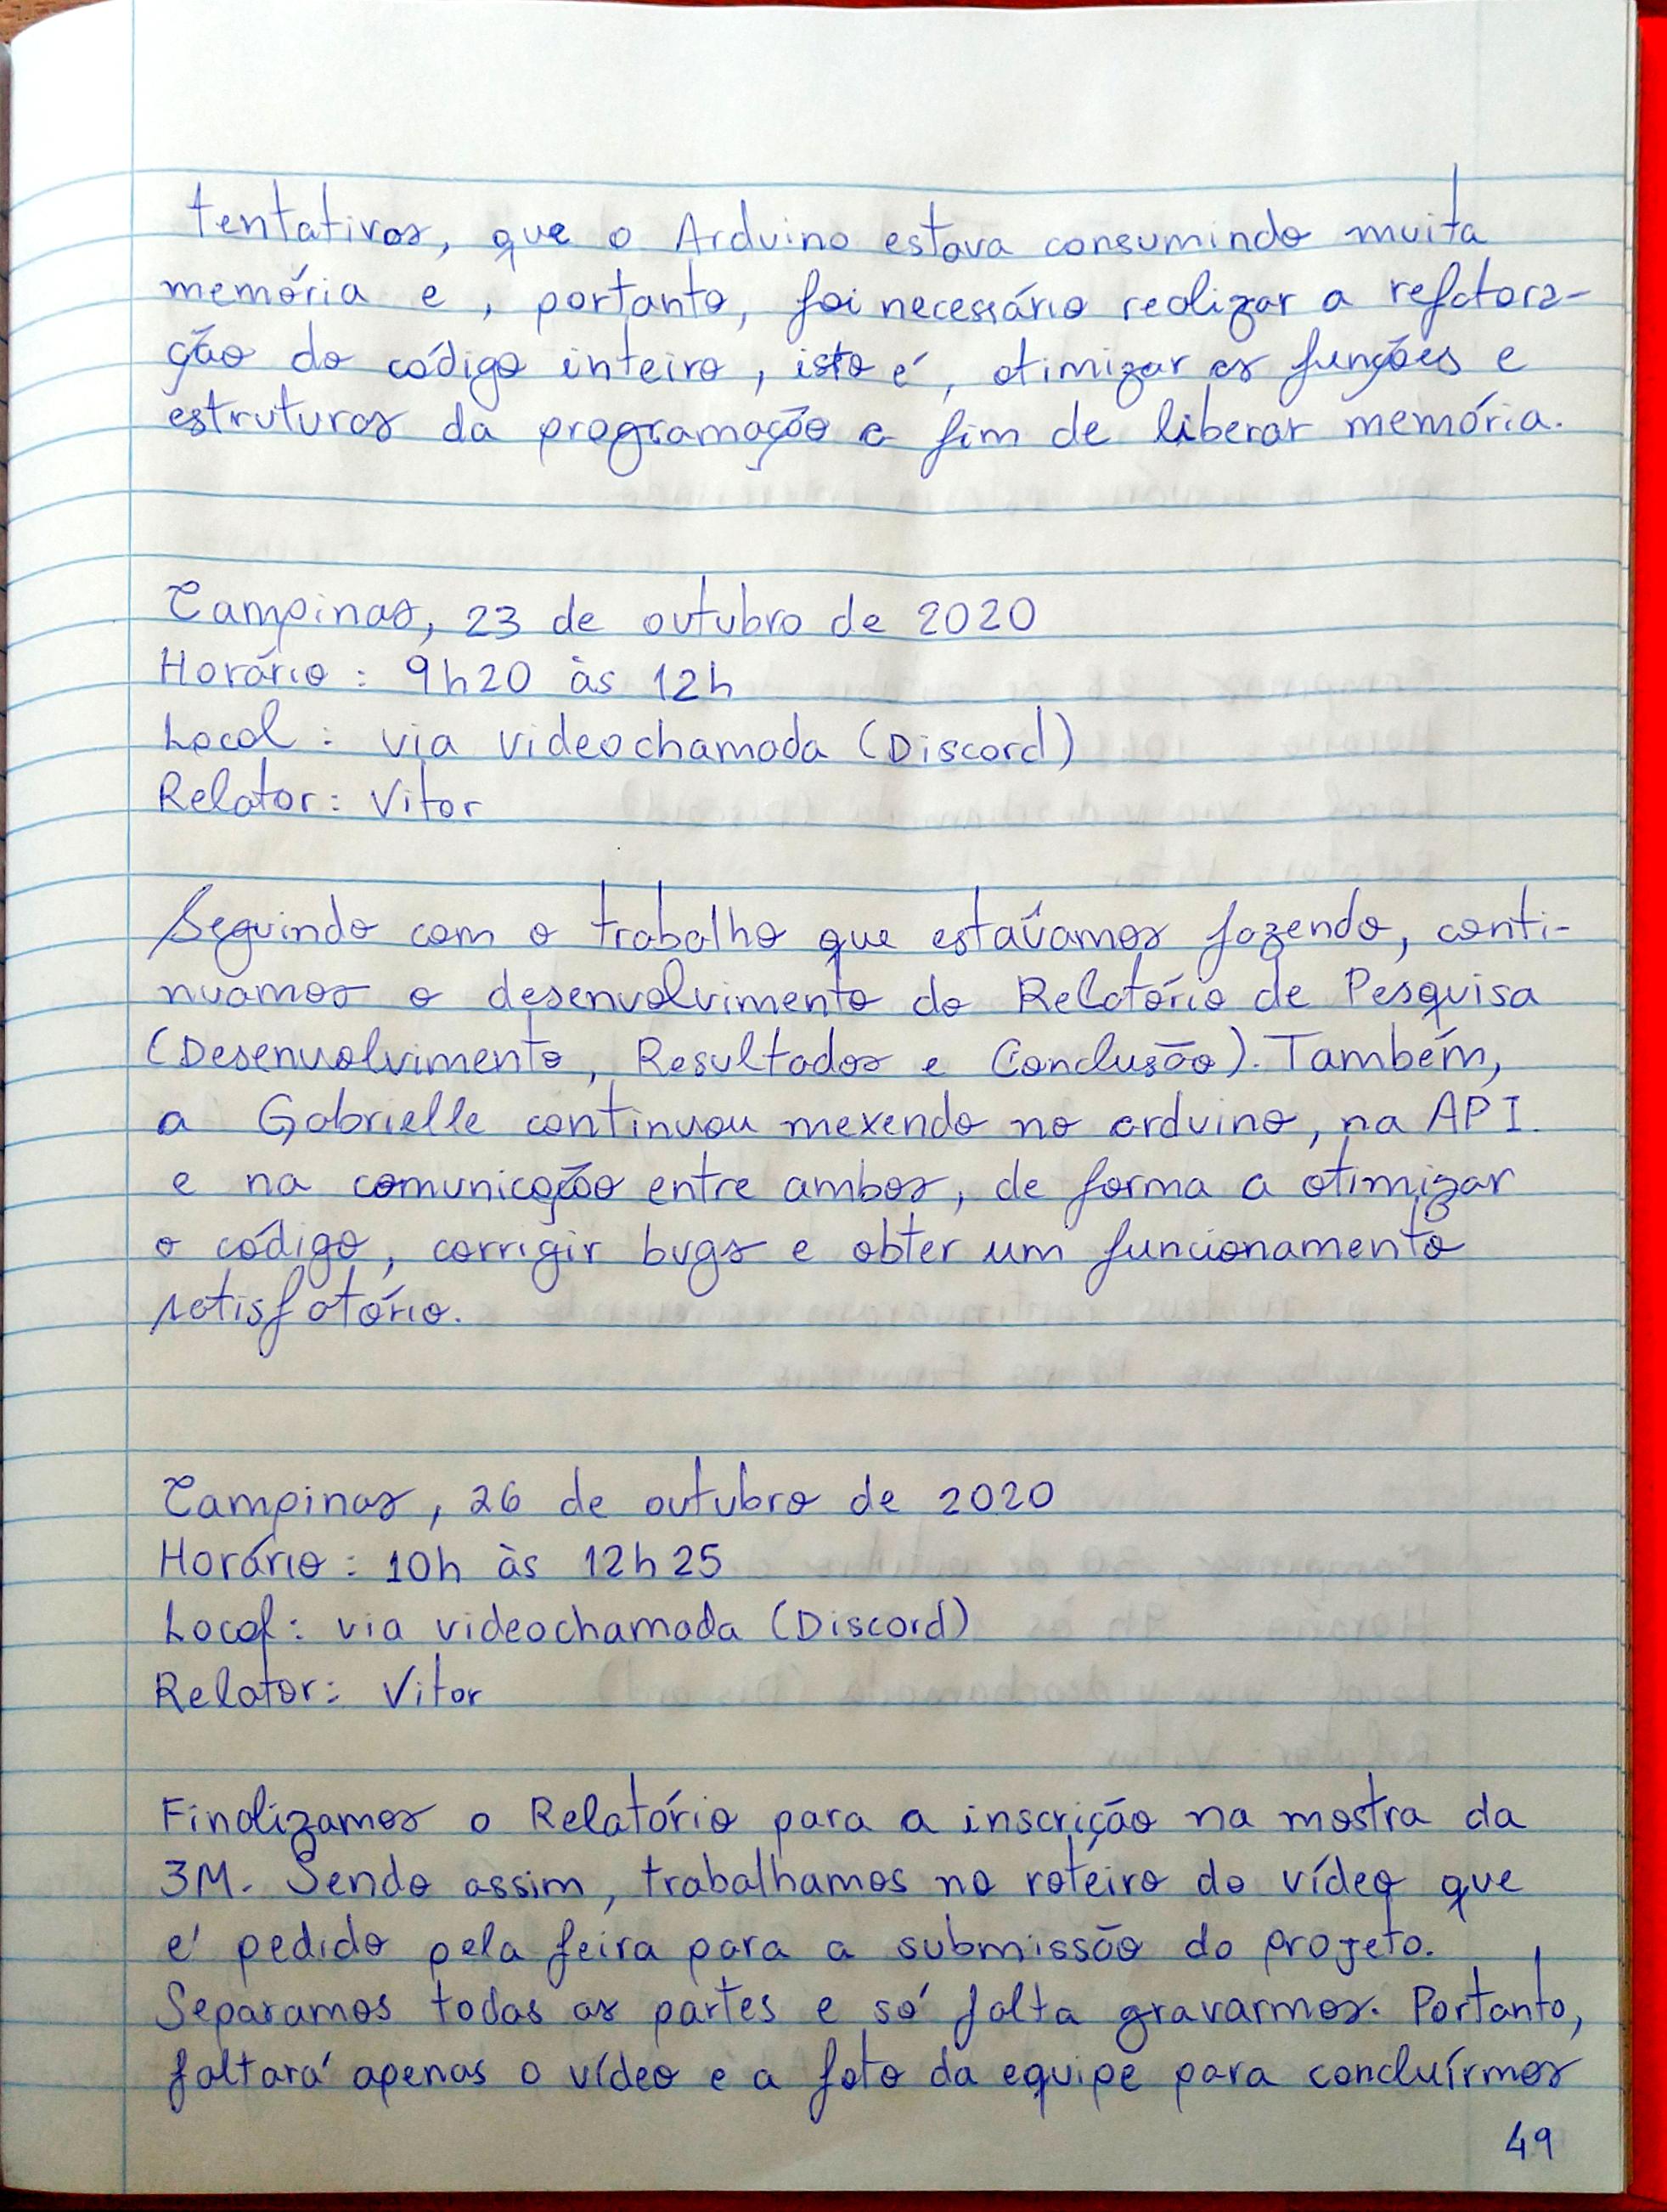 tentativas, que o Arduino estava consumindo muita
memória e, portanto, foi necessário realizar a refatora-
ção do código inteiro, isto é, otimizar as funções e
estruturas da programação a fim de liberar memória.
Campinas, 23 de outubro de 2020
Horário: 9h20 às 12h
Local: via videochamada (Discord)
Relator: Vitor
Seguindo com o trabalho que estávamos fazendo, conti-
nuamos o desenvolvimento do Relatório de Pesquisa
(Desenvolvimento, Resultados e Conclusão). Também,
a Gabrielle continuou mexendo no arduino, na API
e na comunicação entre ambos, de forma a otimizar
o código, corrigir bugs e obter um funcionamento
satisfatório.
Campinas, 26 de outubro de 2020
Horário: 10h às 12h25
Local: via videochamada (Discord)
Relator: Vitor
Finalizamos o Relatório para a inscrição na mostra da
3M. Sendo assim, trabalhamos no roteiro do vídeo que
é pedido pela feira para a submissão do projeto.
Separamos todas as partes e só falta gravarmos. Portanto,
faltará apenas o vídeo e a foto da equipe para concluírmos
49